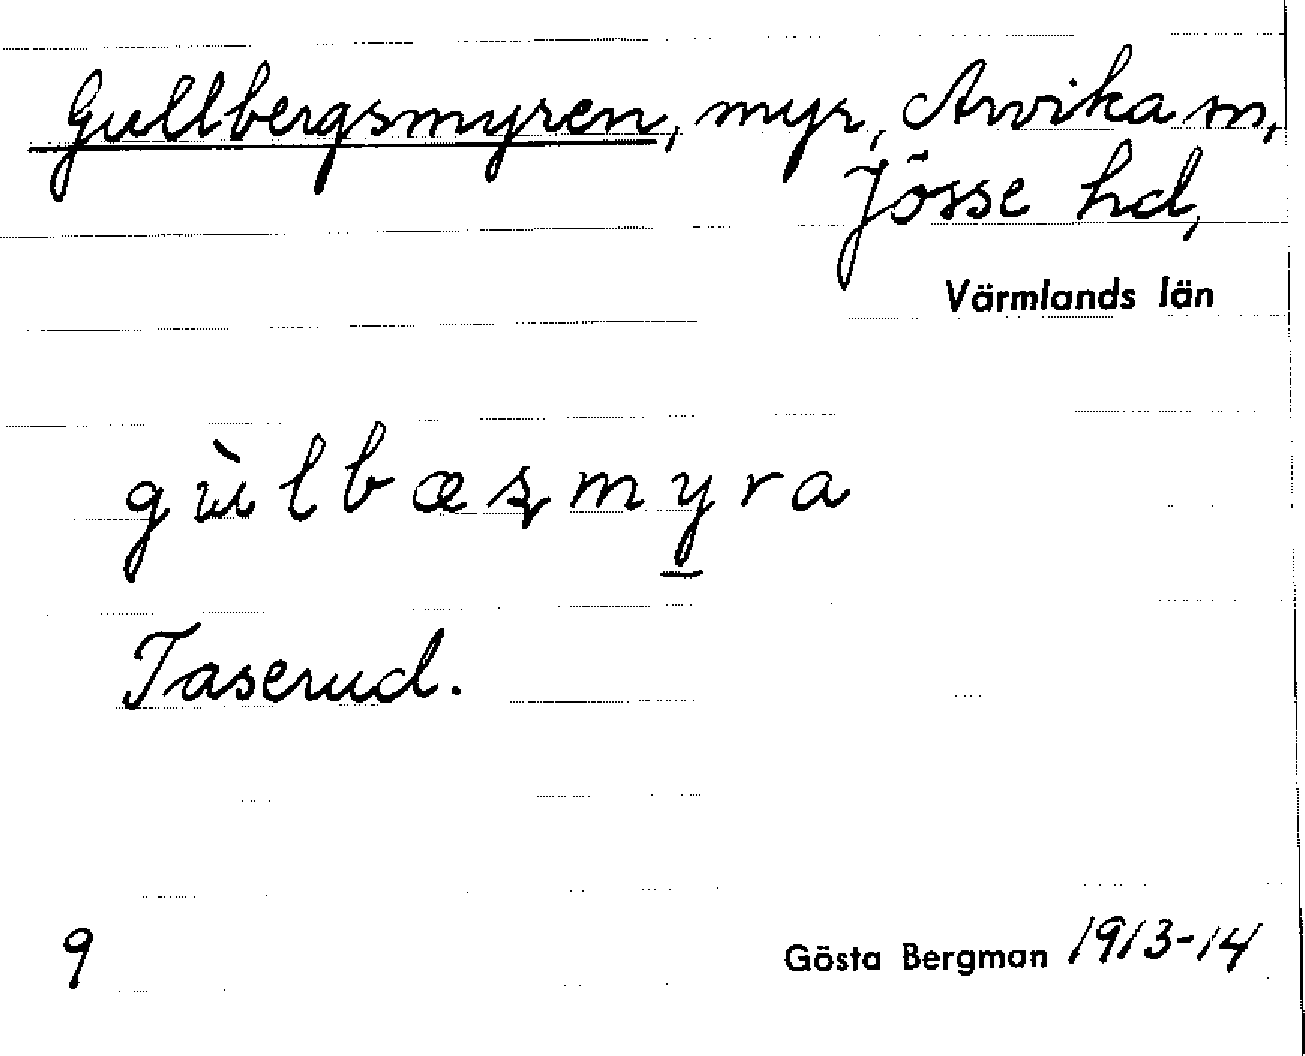 Gullbergsmyren, myr, Arvika sn,
Jösse hd,
Värmlands län
gùlbæʂmy̲ra
Taserud.
9
Gösta Bergman 1913-14